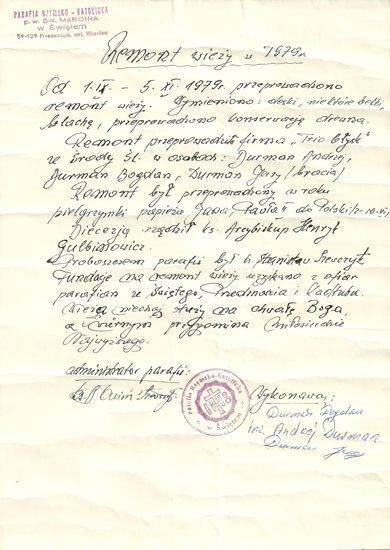 PARAFIA RZYMSKO - KATOLICKA
p. w. ŚW. MARCINA
w Świętem
Remont wieży w 1979r.
Od 1.IX - 5. XI. 1979r. przeprowadzono
remont wieży. Wymieniono: deski, niektóre belki,
blachę, przeprowadzono konserwację drewna.
Remont przeprowadziła firma "Trio
ze Środy Śl. w osobach: Durman Andrzej,
Durman Bogdan, Durman Jerzy /bracia/
Remont był przeprowadzony w roku
pielgrzymki papieża Jana Pawła II do Polski /2-10.VI/
Diecezją rządził ks. Arcybiskup Henryk
Gulbinowicz.
Proboszczem parafii był ks. Stanisław
Fundacje na remont wieży uzyskano z ofiar
parafian ze Świętego, i
Wieża niechaj służy na chwałę Boga,
a wiernym przypomina Miłosierdzie
Najwyższego.
administrator parafii:
Wykonawcy:
Parafia Rzymsko-Katolicka
w Świętem
Durman Bogdan
inż. Andrzej Durman
Durman Jerzy